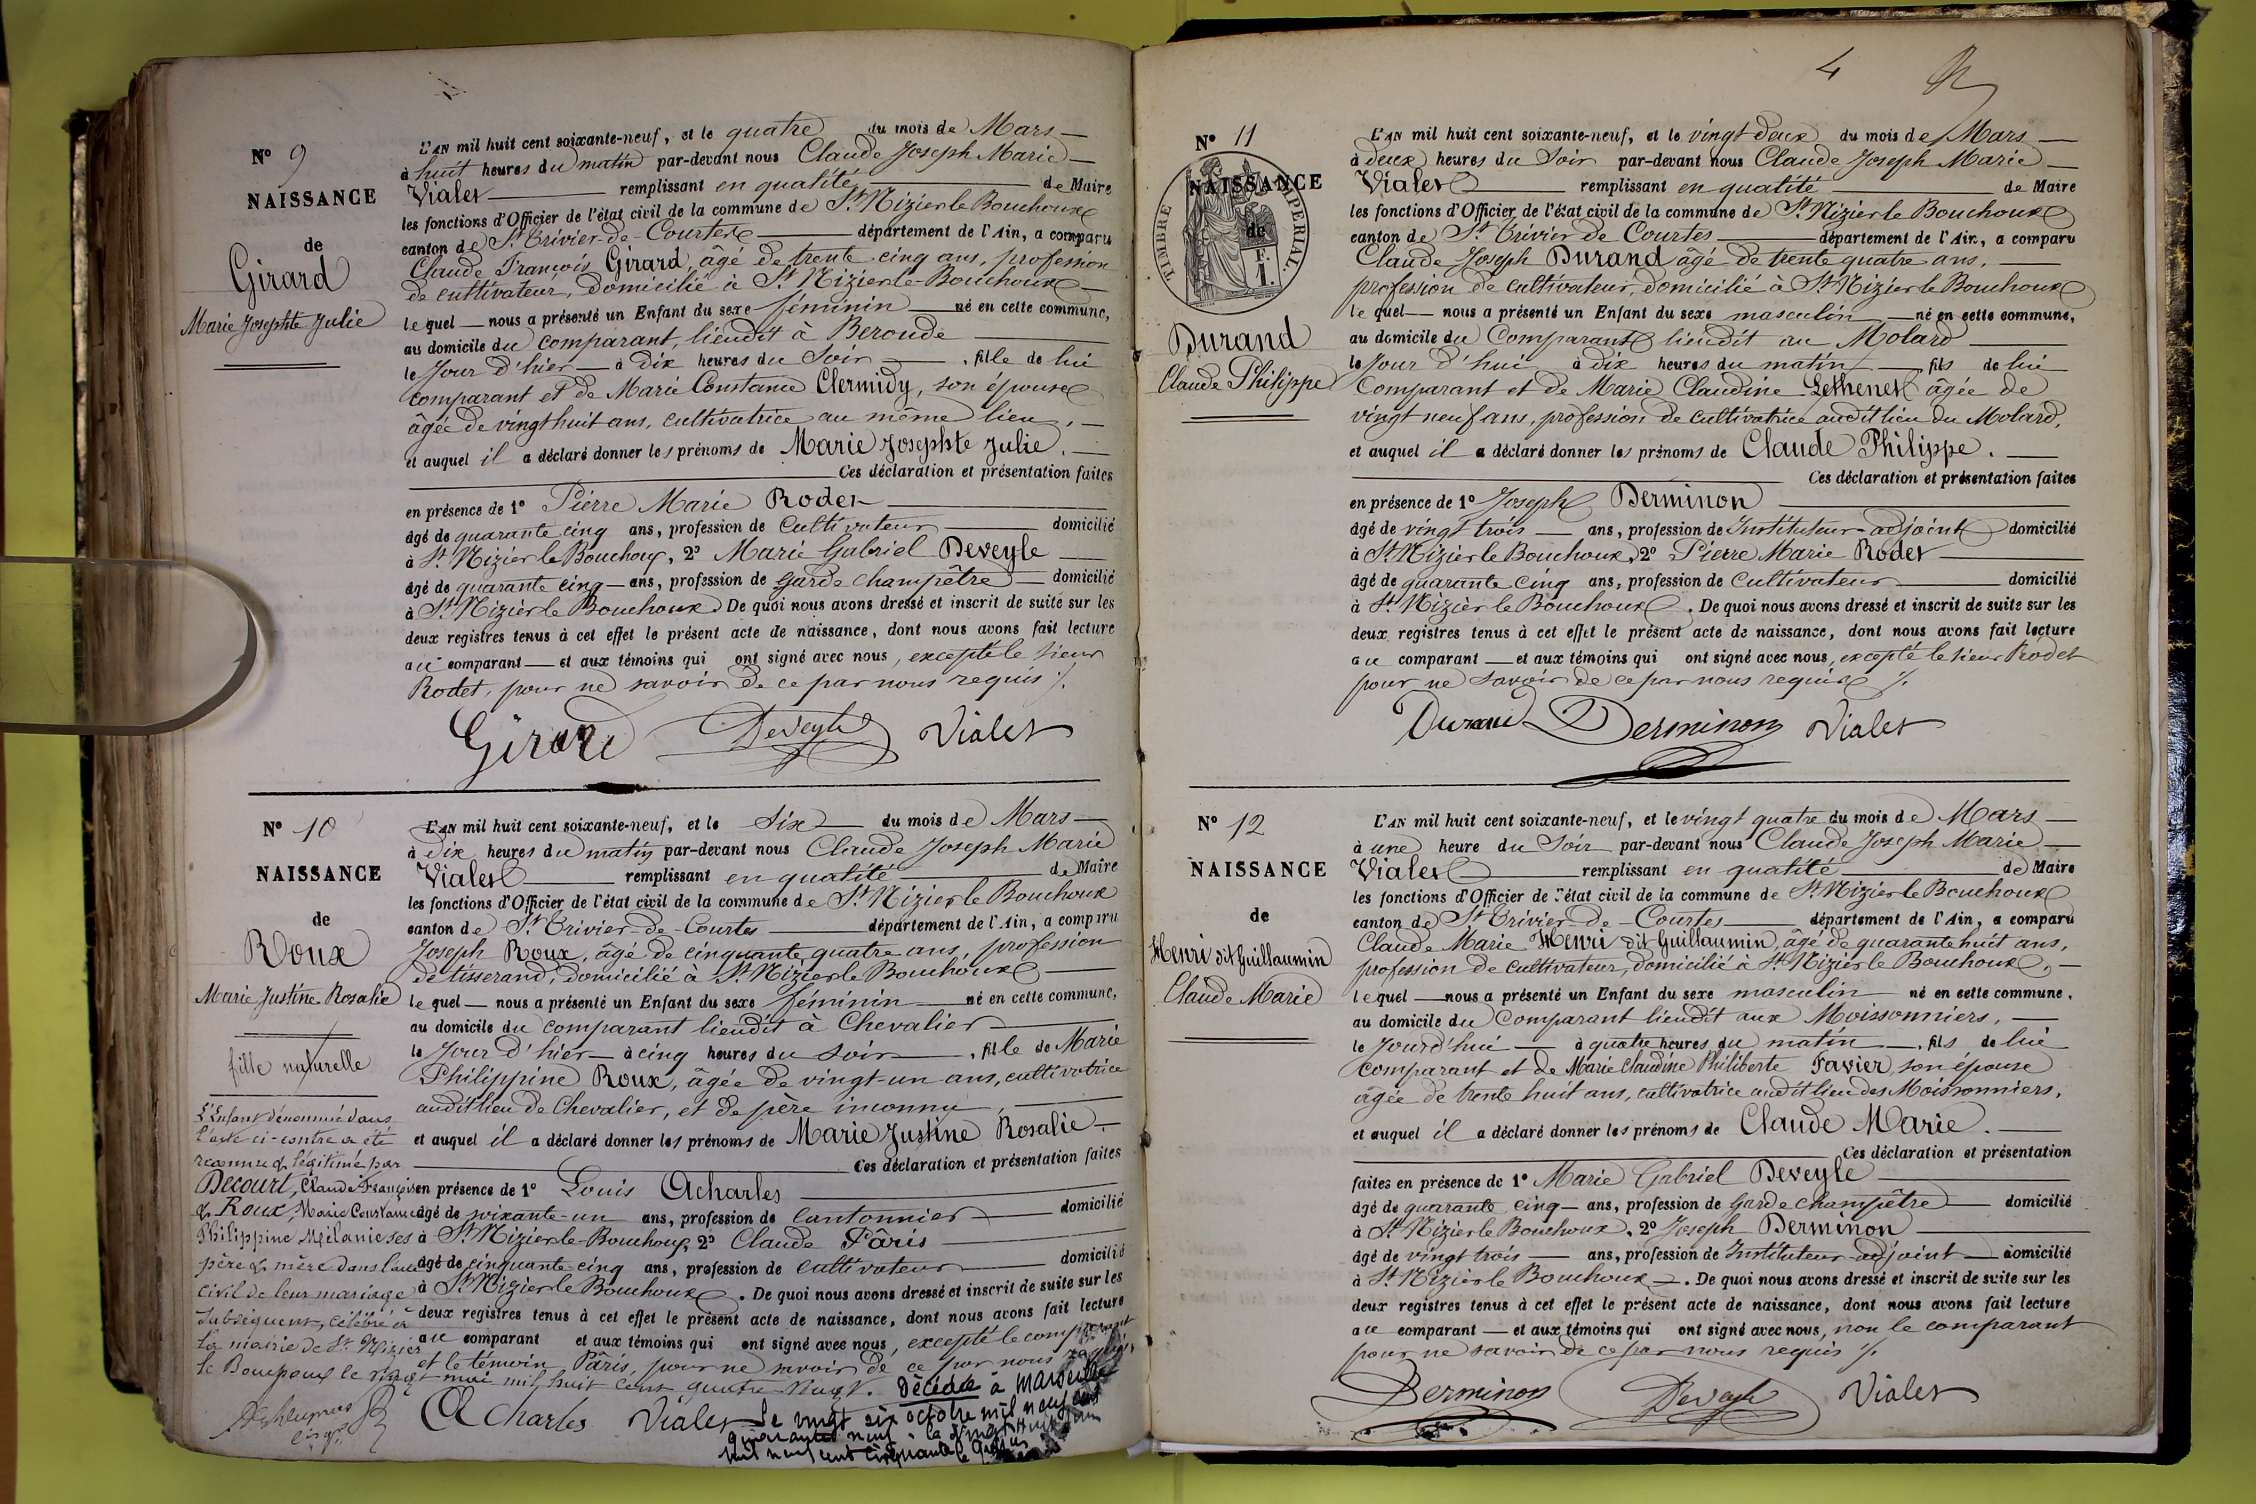 Nº 9
NAISSANCE
de
Girard
Marie Josephte Julie
L'AN mil huit cent soixante-neuf, et le quatre du mois de Mars
à huit heures du matin par-devant nous Claude Joseph Marie
Vialet remplissant en qualité de Maire
les fonctions d'Officier de l'état civil de la commune de St Nizier le Bouchoux
canton de St Trivier-de-Courtes département de l'Ain, a comparu
Claude François Girard, âgé de trente cinq ans, profession
de cultivateur, domicilié à St Nizier le Bouchoux
lequel nous a présenté un Enfant du sexe féminin né en cette commune,
au domicile du comparant, lieudit à Beroude
le Jour d'hier à dix heures du Soir, fille de lui
comparant et de Marie Constance Clermidy, son épouse
âgée de vingt huit ans, cultivatrice au même lieu,
et auquel il a déclaré donner les prénoms de Marie Josephte Julie.
Ces déclaration et présentation faites
en présence de 1º Pierre Marie Rodet
âgé de quarante cinq ans, profession de cultivateur domicilié
à St Nizier le Bouchoux, 2º Marie Gabriel Deveyle
âgé de quarante cinq ans, profession de garde champêtre domicilié
à St Nizier le Bouchoux. De quoi nous avons dressé et inscrit de suite sur les
deux registres tenus à cet effet le présent acte de naissance, dont nous avons fait lecture
au comparant et aux témoins qui ont signé avec nous, excepté le sieur
Rodet, pour ne savoir de ce par nous requis /.
Girard Deveyle Vialet
Nº 10
NAISSANCE
de
Roux
Marie Justine Rosalie
fille naturelle
L'Enfant dénommé dans
l'acte ci-contre a été
reconnu & légitimé par
Decourt, Claude François
& Roux, Marie Constance
Philippine Mélanie ses
père & mère dans l'acte
civil de leur mariage
subséquent, célébré à
la mairie de St Nizier
le Bouchoux le vingt mai mil huit cent quatre vingt.
L'AN mil huit cent soixante-neuf, et le six du mois de Mars
à dix heures du matin par-devant nous Claude Joseph Marie
Vialet remplissant en qualité de Maire
les fonctions d'Officier de l'état civil de la commune de St Nizier le Bouchoux
canton de St Trivier-de-Courtes département de l'Ain, a comparu
Joseph Roux, âgé de cinquante quatre ans, profession
de tisserand, domicilié à St Nizier le Bouchoux
lequel nous a présenté un Enfant du sexe féminin né en cette commune,
au domicile du comparant lieudit à Chevalier
le Jour d'hier à cinq heures du soir, fille de Marie
Philippine Roux, âgée de vingt-un ans, cultivatrice
audit lieu de Chevalier, et de père inconnu,
et auquel il a déclaré donner les prénoms de Marie Justine Rosalie.
Ces déclaration et présentation faites
en présence de 1º Louis Acharles
âgé de soixante-un ans, profession de cantonnier domicilié
à St Nizier le Bouchoux, 2º Claude Pâris
âgé de cinquante cinq ans, profession de cultivateur domicilié
à St Nizier le Bouchoux. De quoi nous avons dressé et inscrit de suite sur les
deux registres tenus à cet effet le présent acte de naissance, dont nous avons fait lecture
au comparant et aux témoins qui ont signé avec nous, excepté le comparant
et le témoin Pâris, pour ne savoir de ce par nous requis
Acharles Vialet
Décédée à Marseille
le vingt six octobre mil neuf cent
quarante neuf
mil neuf cent cinquante
4
Nº 11
NAISSANCE
de
TIMBRE IMPERIAL
F. 1.
Durand
Claude Philippe
L'AN mil huit cent soixante-neuf, et le vingt deux du mois de Mars
à deux heures du Soir par-devant nous Claude Joseph Marie
Vialet remplissant en qualité de Maire
les fonctions d'Officier de l'état civil de la commune de St Nizier le Bouchoux
canton de St Trivier de Courtes département de l'Ain, a comparu
Claude Joseph Durand âgé de trente quatre ans,
profession de cultivateur, domicilié à St Nizier le Bouchoux
lequel nous a présenté un Enfant du sexe masculin né en cette commune,
au domicile du comparant lieudit au Molard
le Jour d'hui à dix heures du matin, fils de lui
comparant et de Marie Claudine Lethenet âgée de
vingt neuf ans, profession de cultivatrice audit lieu du Molard,
et auquel il a déclaré donner les prénoms de Claude Philippe.
Ces déclaration et présentation faites
en présence de 1º Joseph Derminon
âgé de vingt trois ans, profession de Instituteur-adjoint domicilié
à St Nizier le Bouchoux, 2º Pierre Marie Rodet
âgé de quarante cinq ans, profession de cultivateur domicilié
à St Nizier le Bouchoux. De quoi nous avons dressé et inscrit de suite sur les
deux registres tenus à cet effet le présent acte de naissance, dont nous avons fait lecture
au comparant et aux témoins qui ont signé avec nous, excepté le sieur Rodet
pour ne savoir de ce par nous requis /.
Durand Derminon Vialet
Nº 12
NAISSANCE
de
Henri dit Guillaumin
Claude Marie
L'AN mil huit cent soixante-neuf, et le vingt quatre du mois de Mars
à une heure du Soir par-devant nous Claude Joseph Marie
Vialet remplissant en qualité de Maire
les fonctions d'Officier de l'état civil de la commune de St Nizier le Bouchoux
canton de St Trivier-de-Courtes département de l'Ain, a comparu
Claude Marie Henri dit Guillaumin, âgé de quarante huit ans,
profession de cultivateur, domicilié à St Nizier le Bouchoux,
lequel nous a présenté un Enfant du sexe masculin né en cette commune,
au domicile du comparant lieudit aux Moissonniers,
le Jourd'hui à quatre heures du matin, fils de lui
comparant et de Marie Claudine Philiberte Favier, son épouse
âgée de trente huit ans, cultivatrice audit lieu des Moissonniers,
et auquel il a déclaré donner les prénoms de Claude Marie.
Ces déclaration et présentation
faites en présence de 1º Marie Gabriel Deveyle
âgé de quarante cinq ans, profession de Garde champêtre domicilié
à St Nizier le Bouchoux, 2º Joseph Derminon
âgé de vingt trois ans, profession de Instituteur-adjoint domicilié
à St Nizier le Bouchoux. De quoi nous avons dressé et inscrit de suite sur les
deux registres tenus à cet effet le présent acte de naissance, dont nous avons fait lecture
au comparant et aux témoins qui ont signé avec nous, non le comparant
pour ne savoir de ce par nous requis /.
Derminon Deveyle Vialet